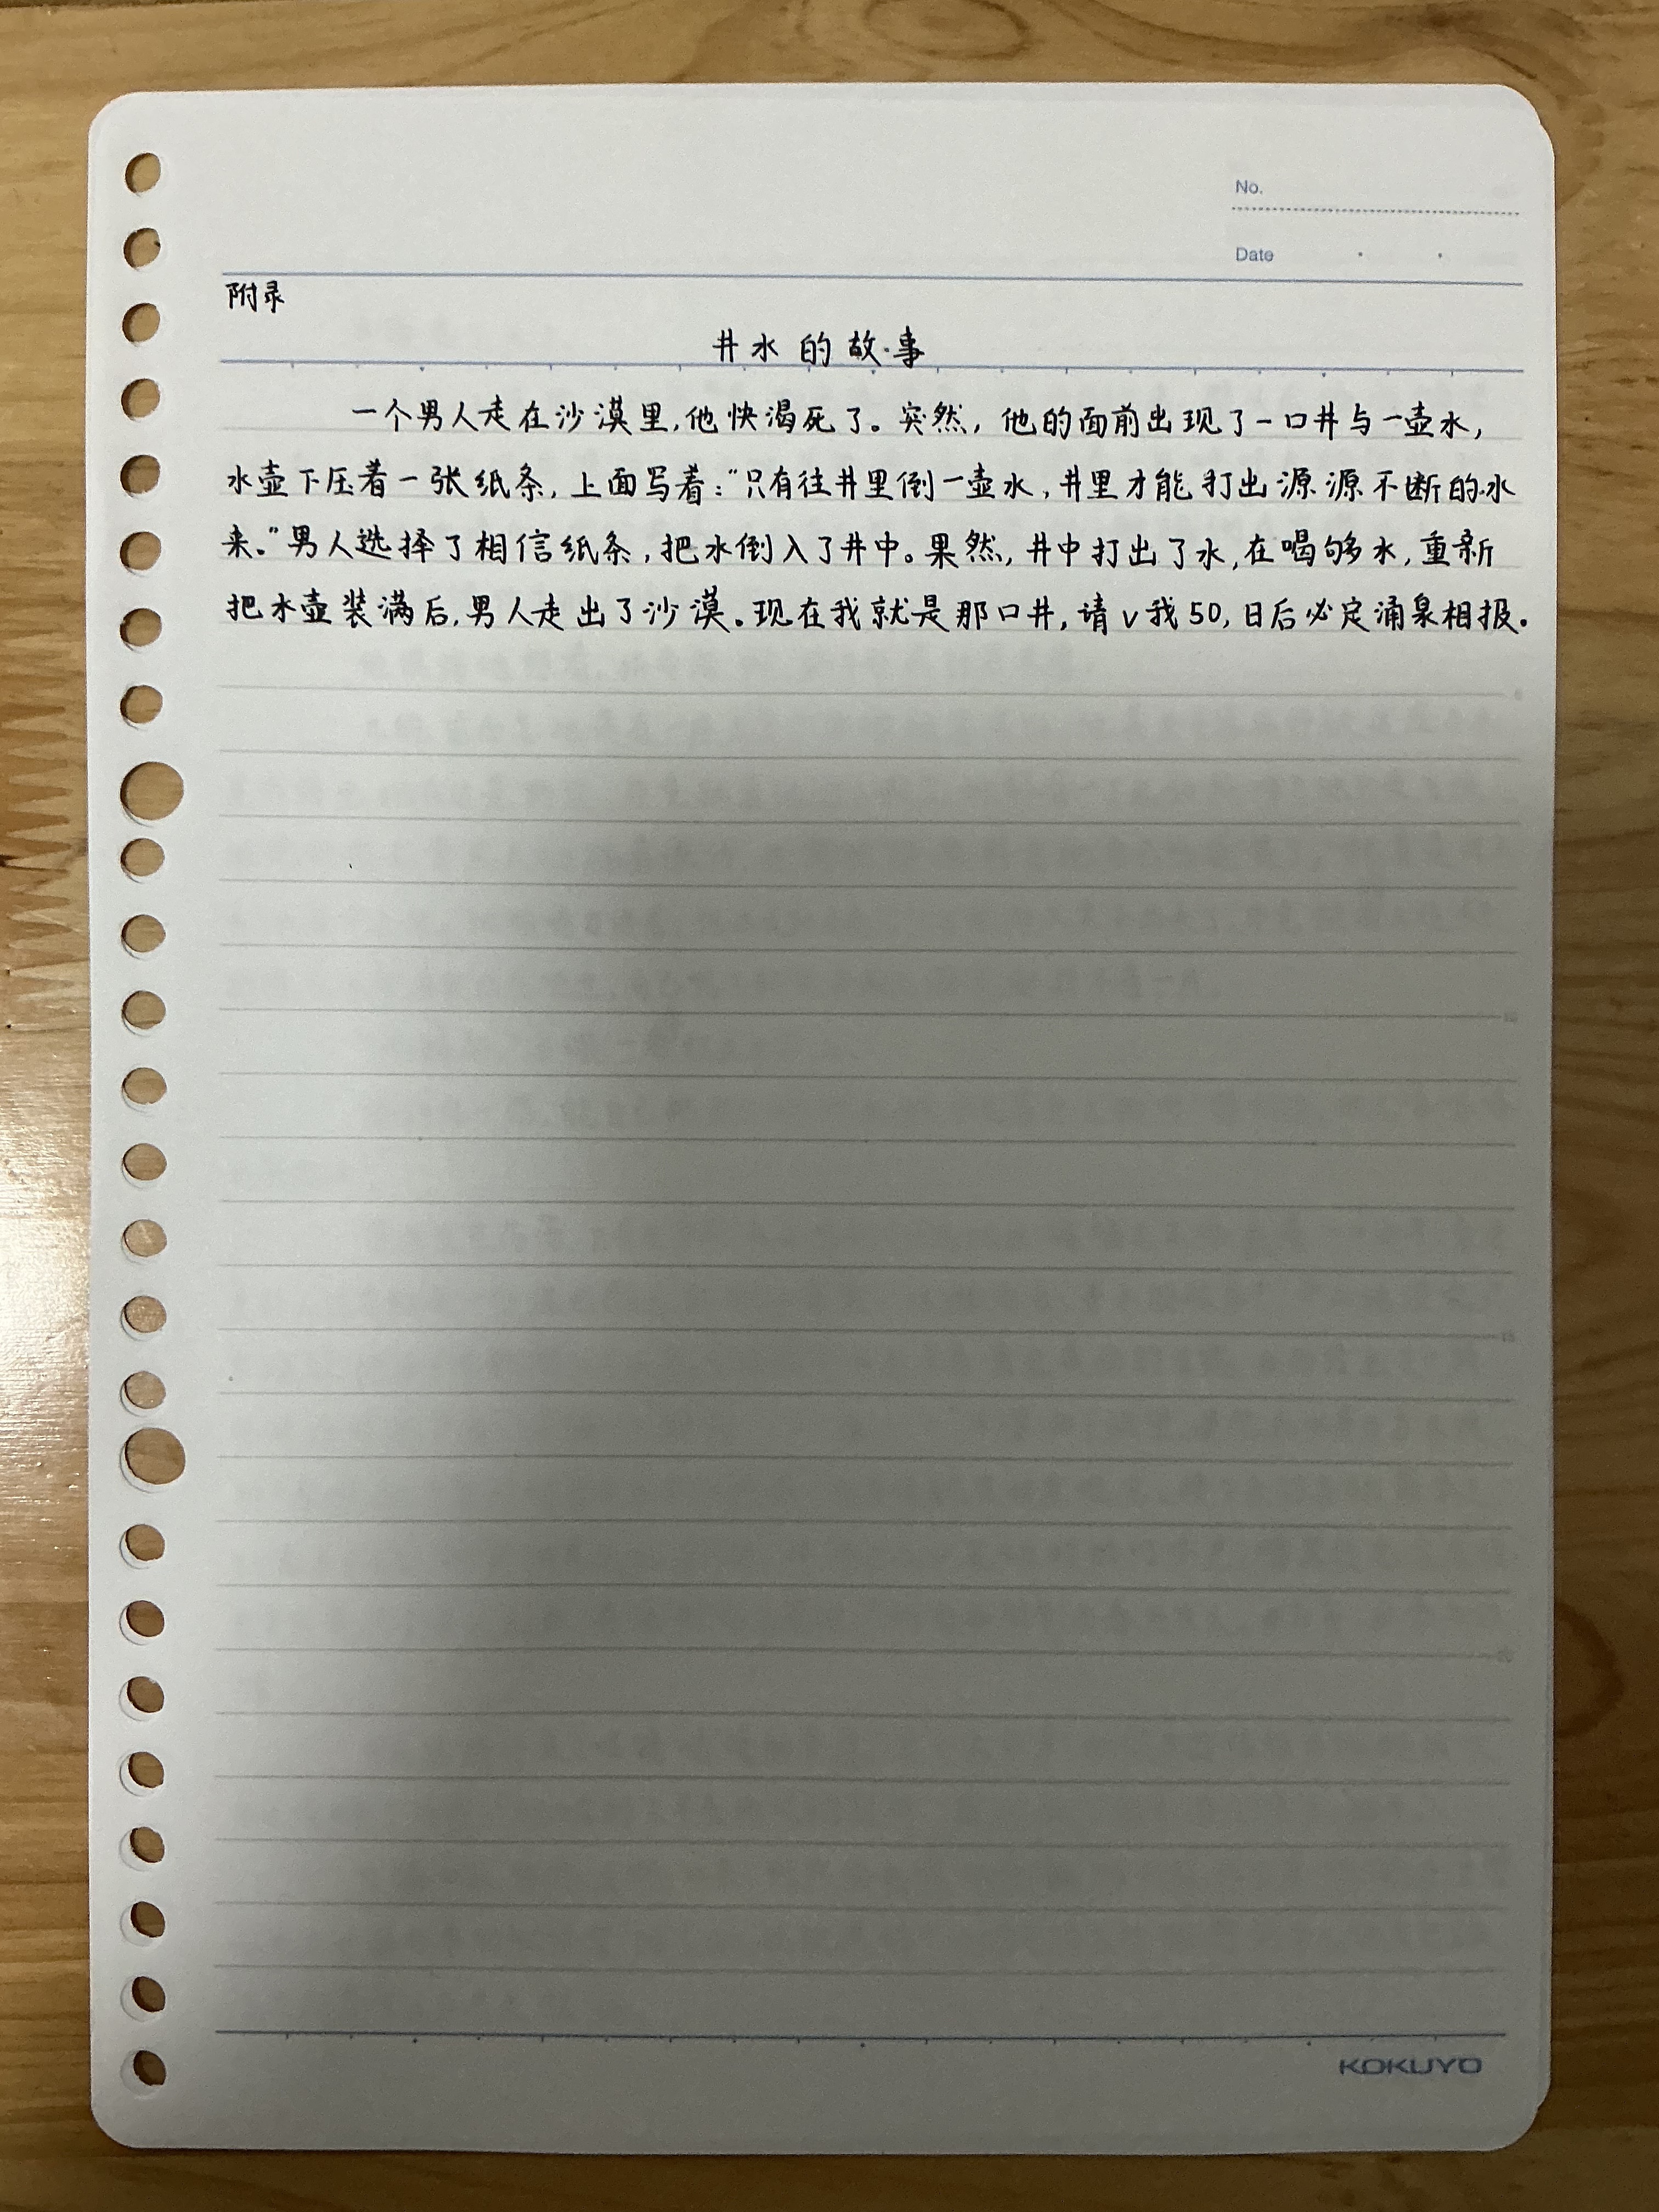 No.
Date
附录
井水的故事
一个男人走在沙漠里,他快渴死了。突然,他的面前出现了一口井与一壶水,
水壶下压着一张纸条,上面写着:"只有往井里倒一壶水,井里才能打出源源不断的水
来。"男人选择了相信纸条,把水倒入了井中。果然,井中打出了水,在喝够水,重新
把水壶装满后,男人走出了沙漠。现在我就是那口井,请v我50,日后必定涌泉相报。
KOKUYO